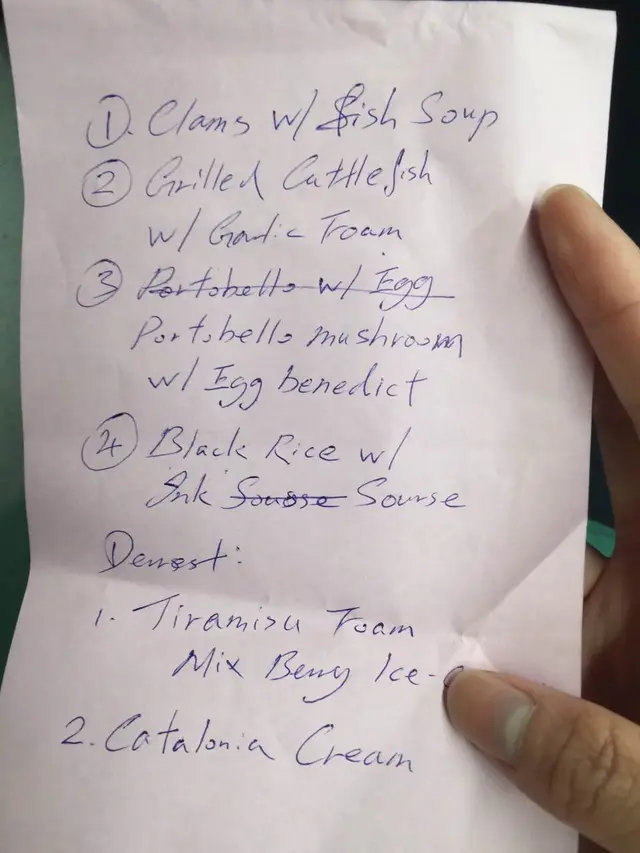 ① Clams w/ fish Soup
② Grilled Cuttlefish
w/ Garlic Foam
③ Portobello w/ Egg
Portobello mushroom
w/ Egg benedict
④ Black Rice w/
Ink Sousse Sourse
Dessert:
1. Tiramisu Foam
Mix Berry Ice-
2. Catalonia Cream